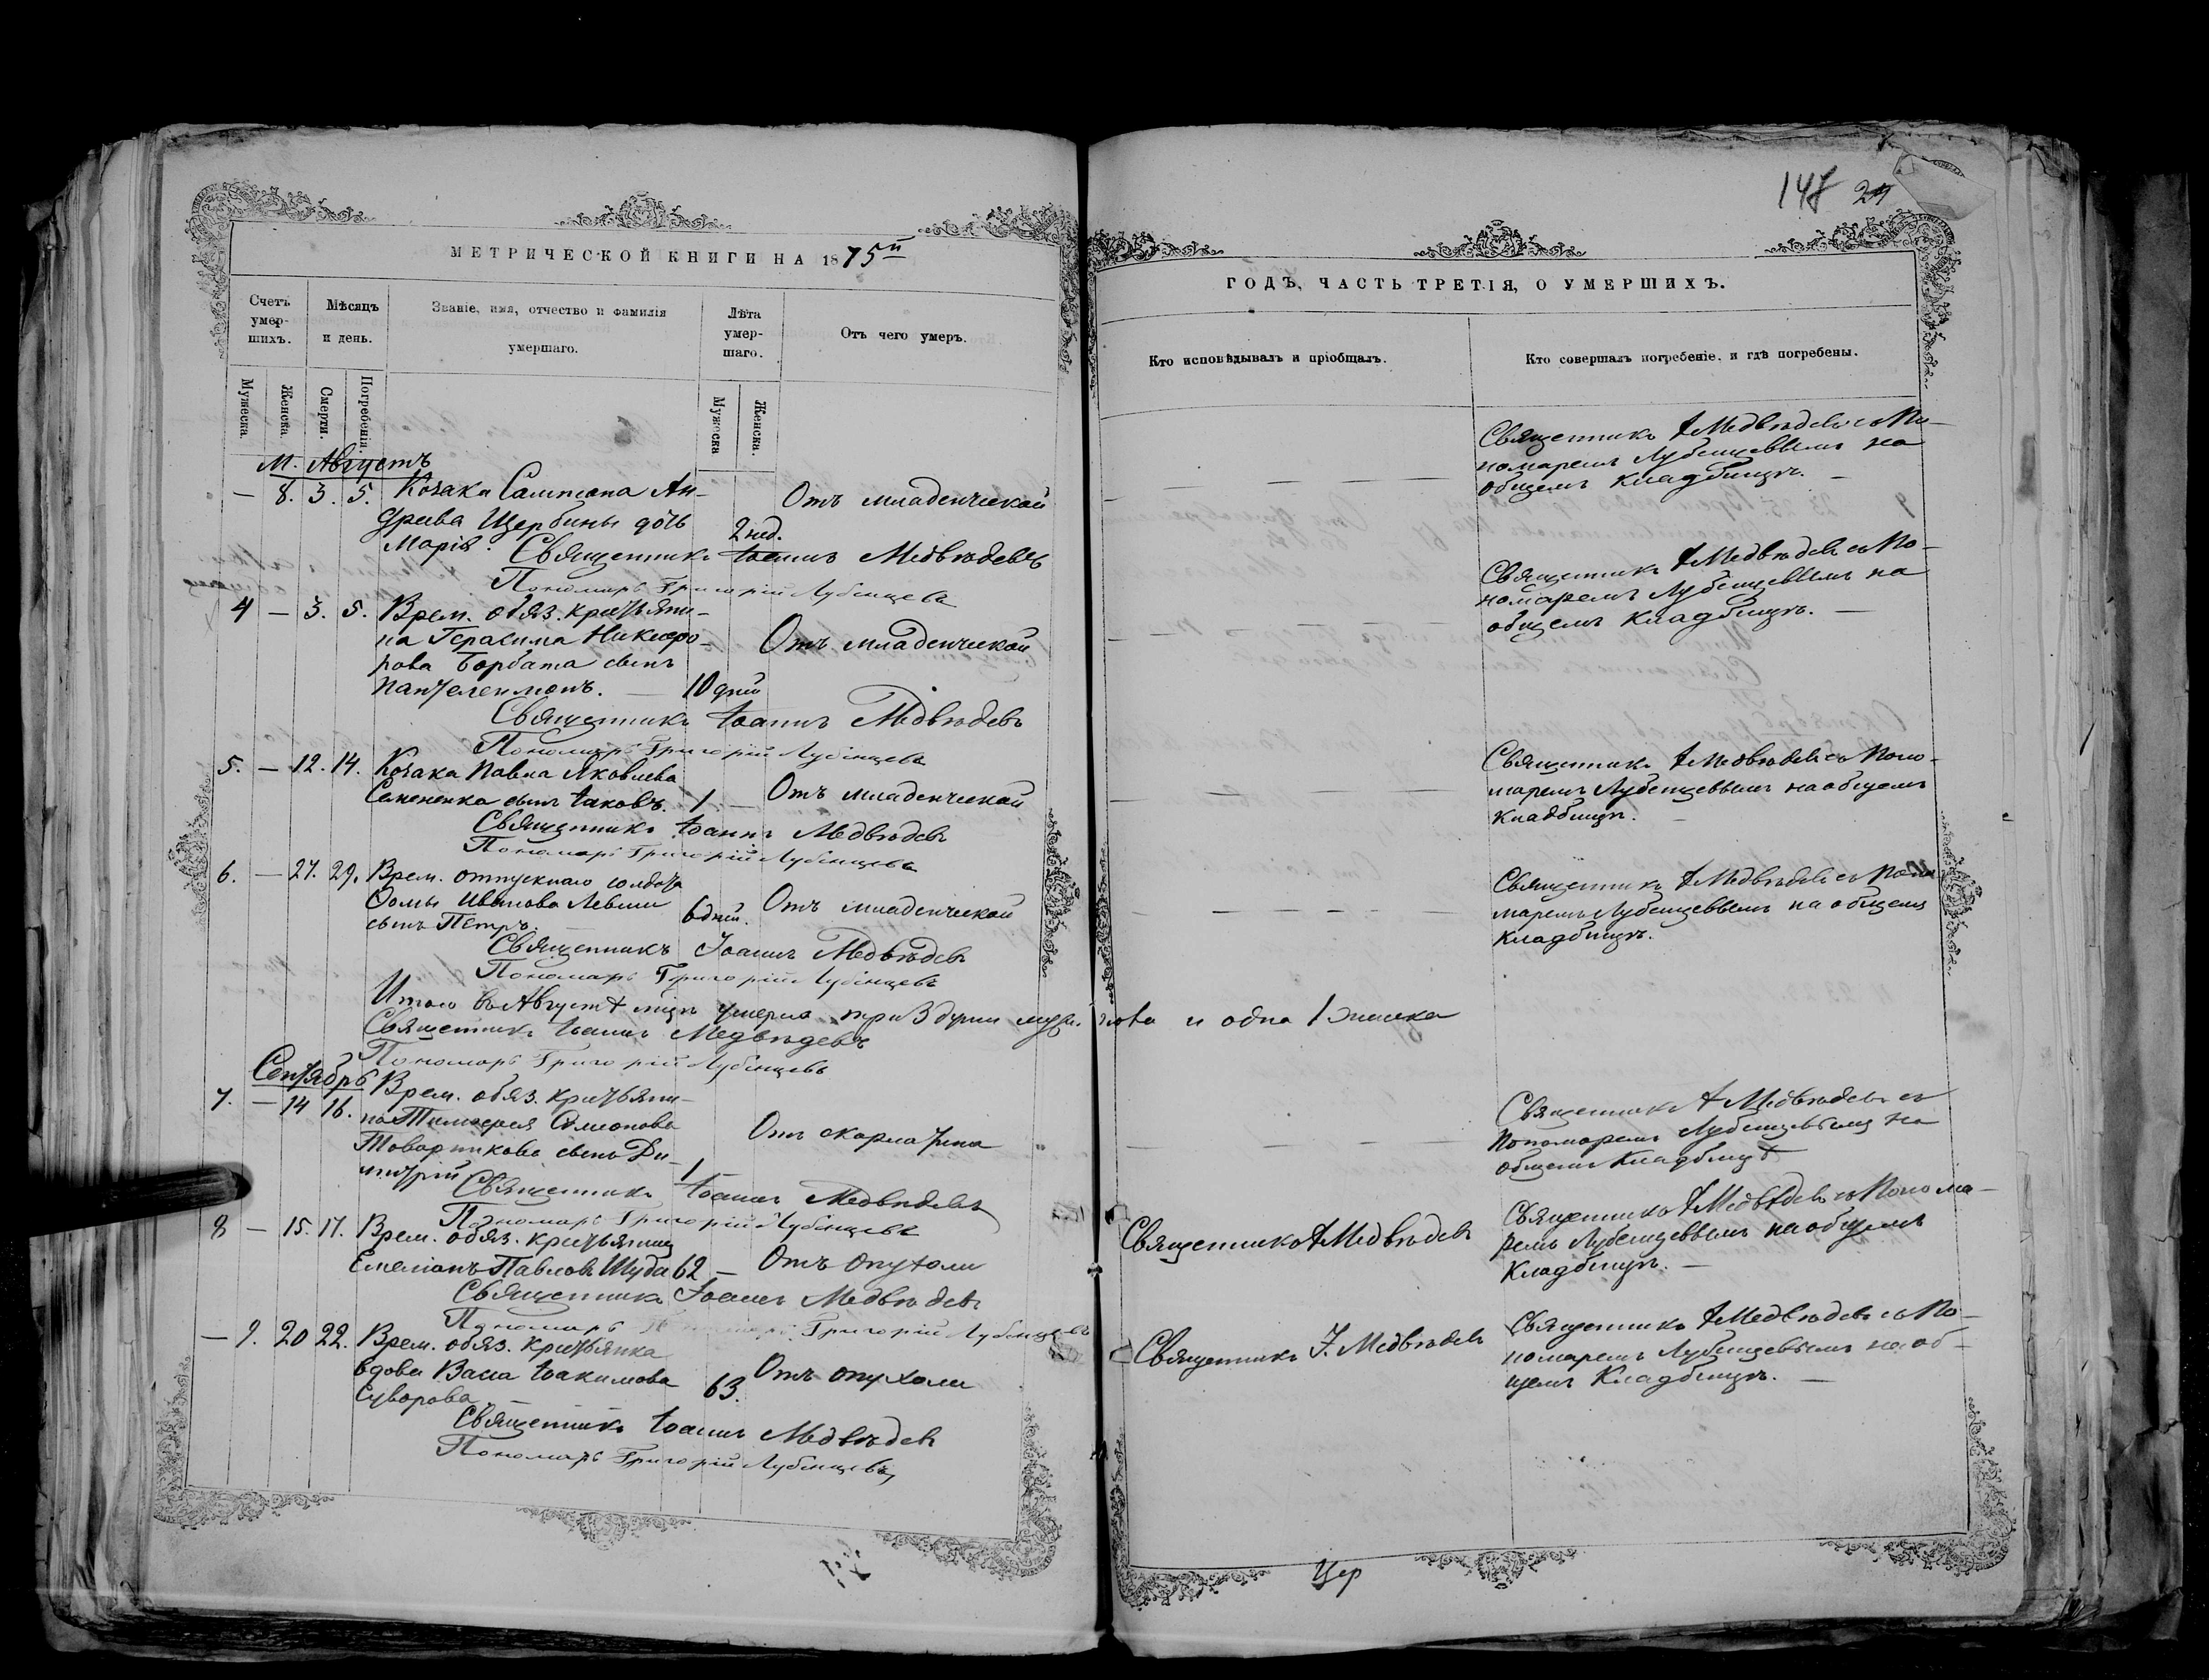 МЕТРИЧЕСКОЙ КНИГИ НА 1875й
Счетъ умер-шихъ.
Мѣсяцъ и день.
Званіе, имя, отчество и фамилія умершаго.
Лѣта умер-шаго.
Отъ чего умеръ.
Мужеска.
Женска.
Смерти.
Погребенія
Мужеска
Женска.
М. Августъ
— 8. 3. 5. Козака Сампсона Ан-
дреева Щербины дочь
Марія. 2 нед. Отъ младенческой
Священникъ Іоаннъ Медвѣдевъ
Пономарь Григорій Лубенцевъ
4 — 3. 5. Врем. обяз. крестьяни-
на Герасима Никифо-
рова Борбата сынъ
Пантелеимонъ. — 10 дній Отъ младенческой
Священникъ Іоаннъ Медвѣдевъ
Пономарь Григорій Лубенцевъ
5. — 12. 14. Козака Павла Яковлева
Семененка сынъ Іаковъ. 1 — Отъ младенческой
Священникъ Іоаннъ Медвѣдевъ
Пономарь Григорій Лубенцевъ
6. — 27. 29. Врем. отпускнаго солдата
Ѳомы Иванова
сынъ Петръ. 6 дній. Отъ младенческой
Священникъ Іоаннъ Медвѣдевъ
Пономарь Григорій Лубенцевъ
Итого въ Августѣ умерло три 3 души и одна 1 женска
Священникъ Іоаннъ Медвѣдевъ
Пономарь Григорій Лубенцевъ
Сентябрь
7. — 14 16. Врем. обяз. крестьяни-
на Тимофея Симонова
Товарникова сынъ Ди-
митрій 1 — Отъ скарлатина
Священникъ Іоаннъ Медвѣдевъ
Пономарь Григорій Лубенцевъ
8 — 15. 17. Врем. обяз. крестьянинъ
Емеліанъ Павловъ Шуда 62 — Отъ опухоли
Священникъ Іоаннъ Медвѣдевъ
Пономарь Григорій Лубенцевъ
— 9. 20 22. Врем. обяз. крестьянка
вдова Васса Іоакимова
Суворова — 63. Отъ опухоли
Священникъ Іоаннъ Медвѣдевъ
Пономарь Григорій Лубенцевъ
148 29
ГОДЪ, ЧАСТЬ ТРЕТІЯ, О УМЕРШИХЪ.
Кто исповѣдывалъ и пріобщалъ.
Кто совершалъ погребеніе, и гдѣ погребены.
Священникъ І Медвѣдевъ съ По-
номаремъ Лубенцевымъ на
общемъ кладбищѣ. —
Священникъ І Медвѣдевъ съ По-
номаремъ Лубенцевымъ на
общемъ кладбищѣ. —
Священникъ І Медвѣдевъ съ Поно-
маремъ Лубенцевымъ на общемъ
кладбищѣ.
Священникъ І Медвѣдевъ съ Поно
маремъ Лубенцевымъ на общемъ
кладбищѣ.
Священникъ І Медвѣдевъ съ
Пономаремъ Лубенцевымъ на
общемъ кладбищѣ
Священникъ І Медвѣдевъ
Священникъ І Медвѣдевъ съ Понома-
ремъ Лубенцевымъ на общемъ
кладбищѣ. —
Священникъ І. Медвѣдевъ
Священникъ І Медвѣдевъ съ По-
номаремъ Лубенцевымъ на об-
щемъ кладбищѣ. —
Цер